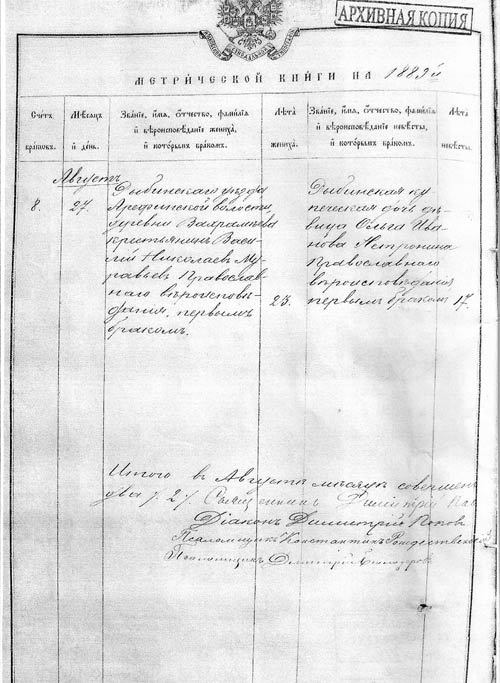 АРХИВНАЯ КОПИЯ
МЕТРИЧЕСКОЙ КНИГИ НА 1889й
Счетъ браковъ.
Мѣсяцъ и день.
Званіе, имя, отчество, фамилія и вѣроисповѣданіе жениха, и которымъ бракомъ.
Лѣта жениха.
Званіе, имя, отчество, фамилія и вѣроисповѣданіе невѣсты, и которымъ бракомъ.
Лѣта невѣсты.
Августъ
8. 27.
Рыбинскаго уѣзда
Арефинской волости,
деревни
крестьянинъ Васи-
лій Николаевъ Му-
равьевъ Православ-
наго вѣроисповѣ-
данія, первымъ
бракомъ.
23.
Рыбинская ку
печеская дочь дѣ-
вица Ольга Ива
нова
Православнаго
вѣроисповѣданія
первымъ бракомъ
17.
Итого въ Августѣ мѣсяцѣ
Священникъ Димитрій
Діаконъ Димитрій Поповъ
Псаломщикъ Константинъ Рождественскій
Псаломщикъ Димитрій